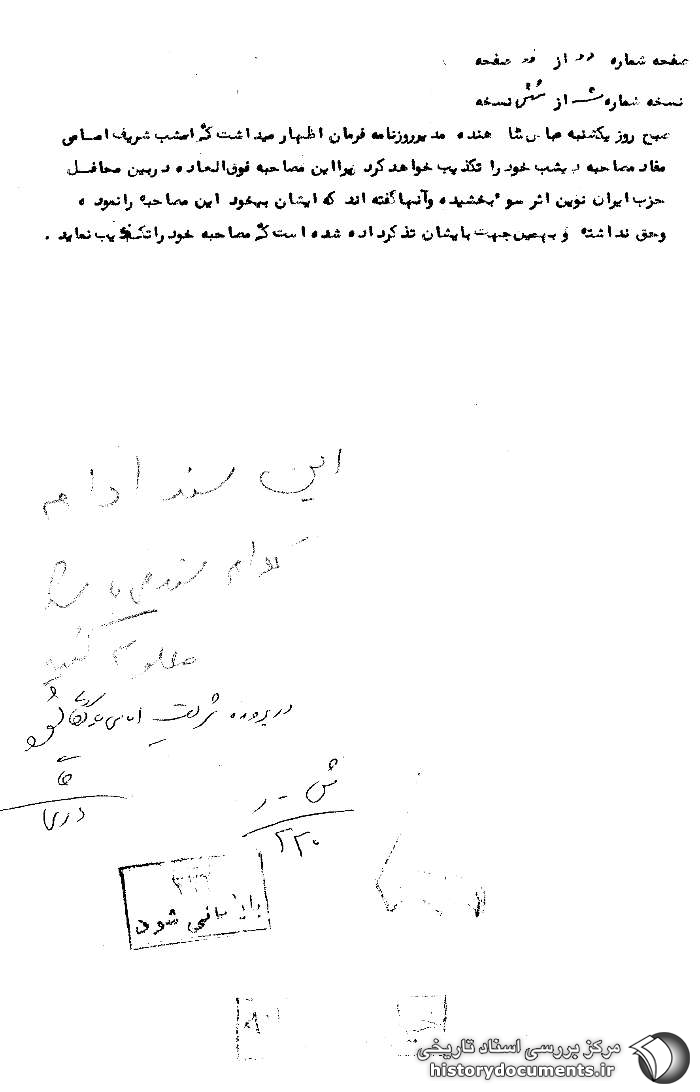 صفحه شماره دو از دو صفحه
نسخه شماره از شش نسخه
صبح روز یکشنبه عباس شاهنده مدیر روزنامه فرمان اظهار میداشت که امشب شریف امامی
مفاد مصاحبه دیشب خود را تکذیب خواهد کرد زیرا این مصاحبه فوق العاده در بین محافل
حزب ایران نوین اثر سوء بخشیده و آنها گفته اند که ایشان بیخود این مصاحبه را نموده
و حق نداشته و بهمین جهت بایشان تذکر داده شده است که مصاحبه خود را تکذیب نماید .
این سند ادامه
کدام سند می باشد
کنید
در پرونده شریف امامی
ش - ر
۲۲۰
بایگانی شود
مرکز بررسی اسناد تاریخی
historydocuments.ir